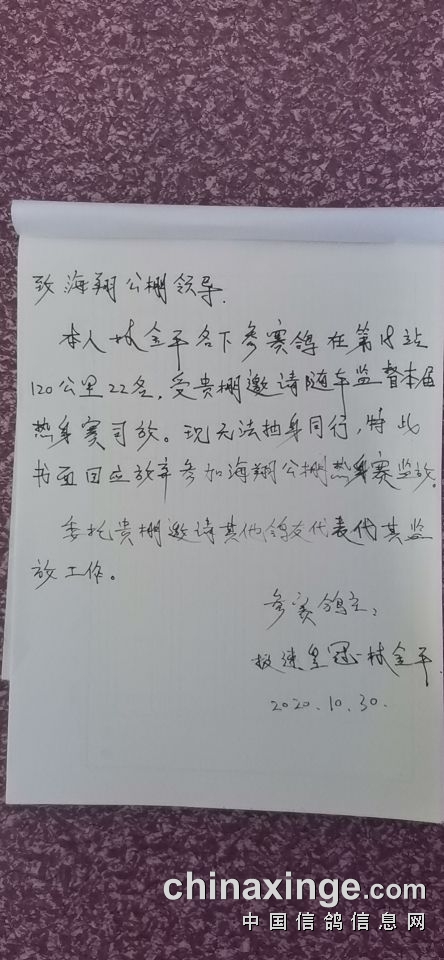 致海翔公棚领导.
本人林金平名下参赛鸽在第18站
120公里22名,受贵棚邀请随车监督本届
热身赛司放。现无法抽身同行,特此
书面回应放弃参加海翔公棚热身赛监放.
委托贵棚邀请其他鸽友代表代其监
放工作。
参赛鸽主:
极速皇冠-林金平.
2020.10.30.
chinaxinge.com
中国信鸽信息网